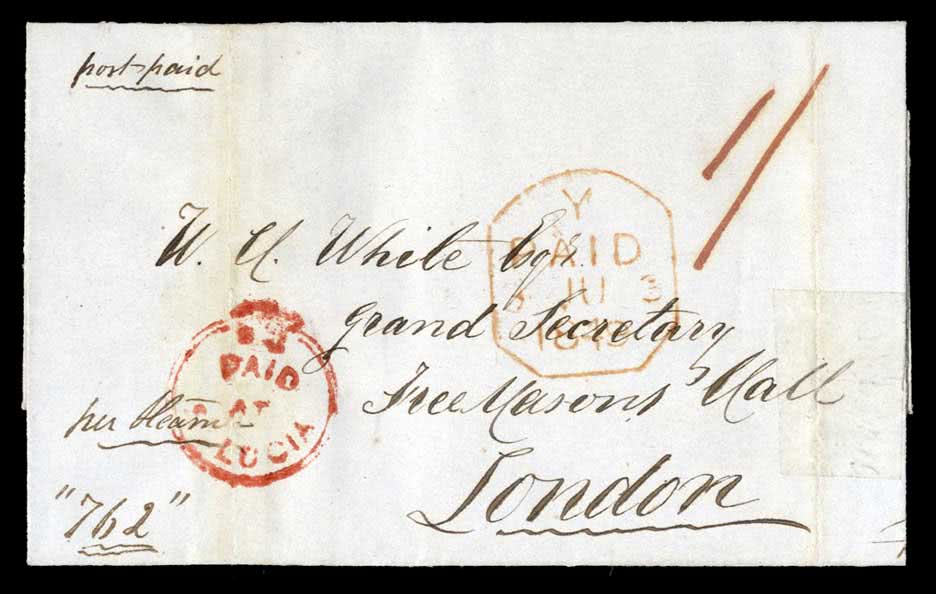 post paid
1/
Y
PAID
3 JU 3
W. H. White Esqr.
Grand Secretary
PAID
AT
LUCIA
Free Masons' Hall
per Steamer
London
"762"